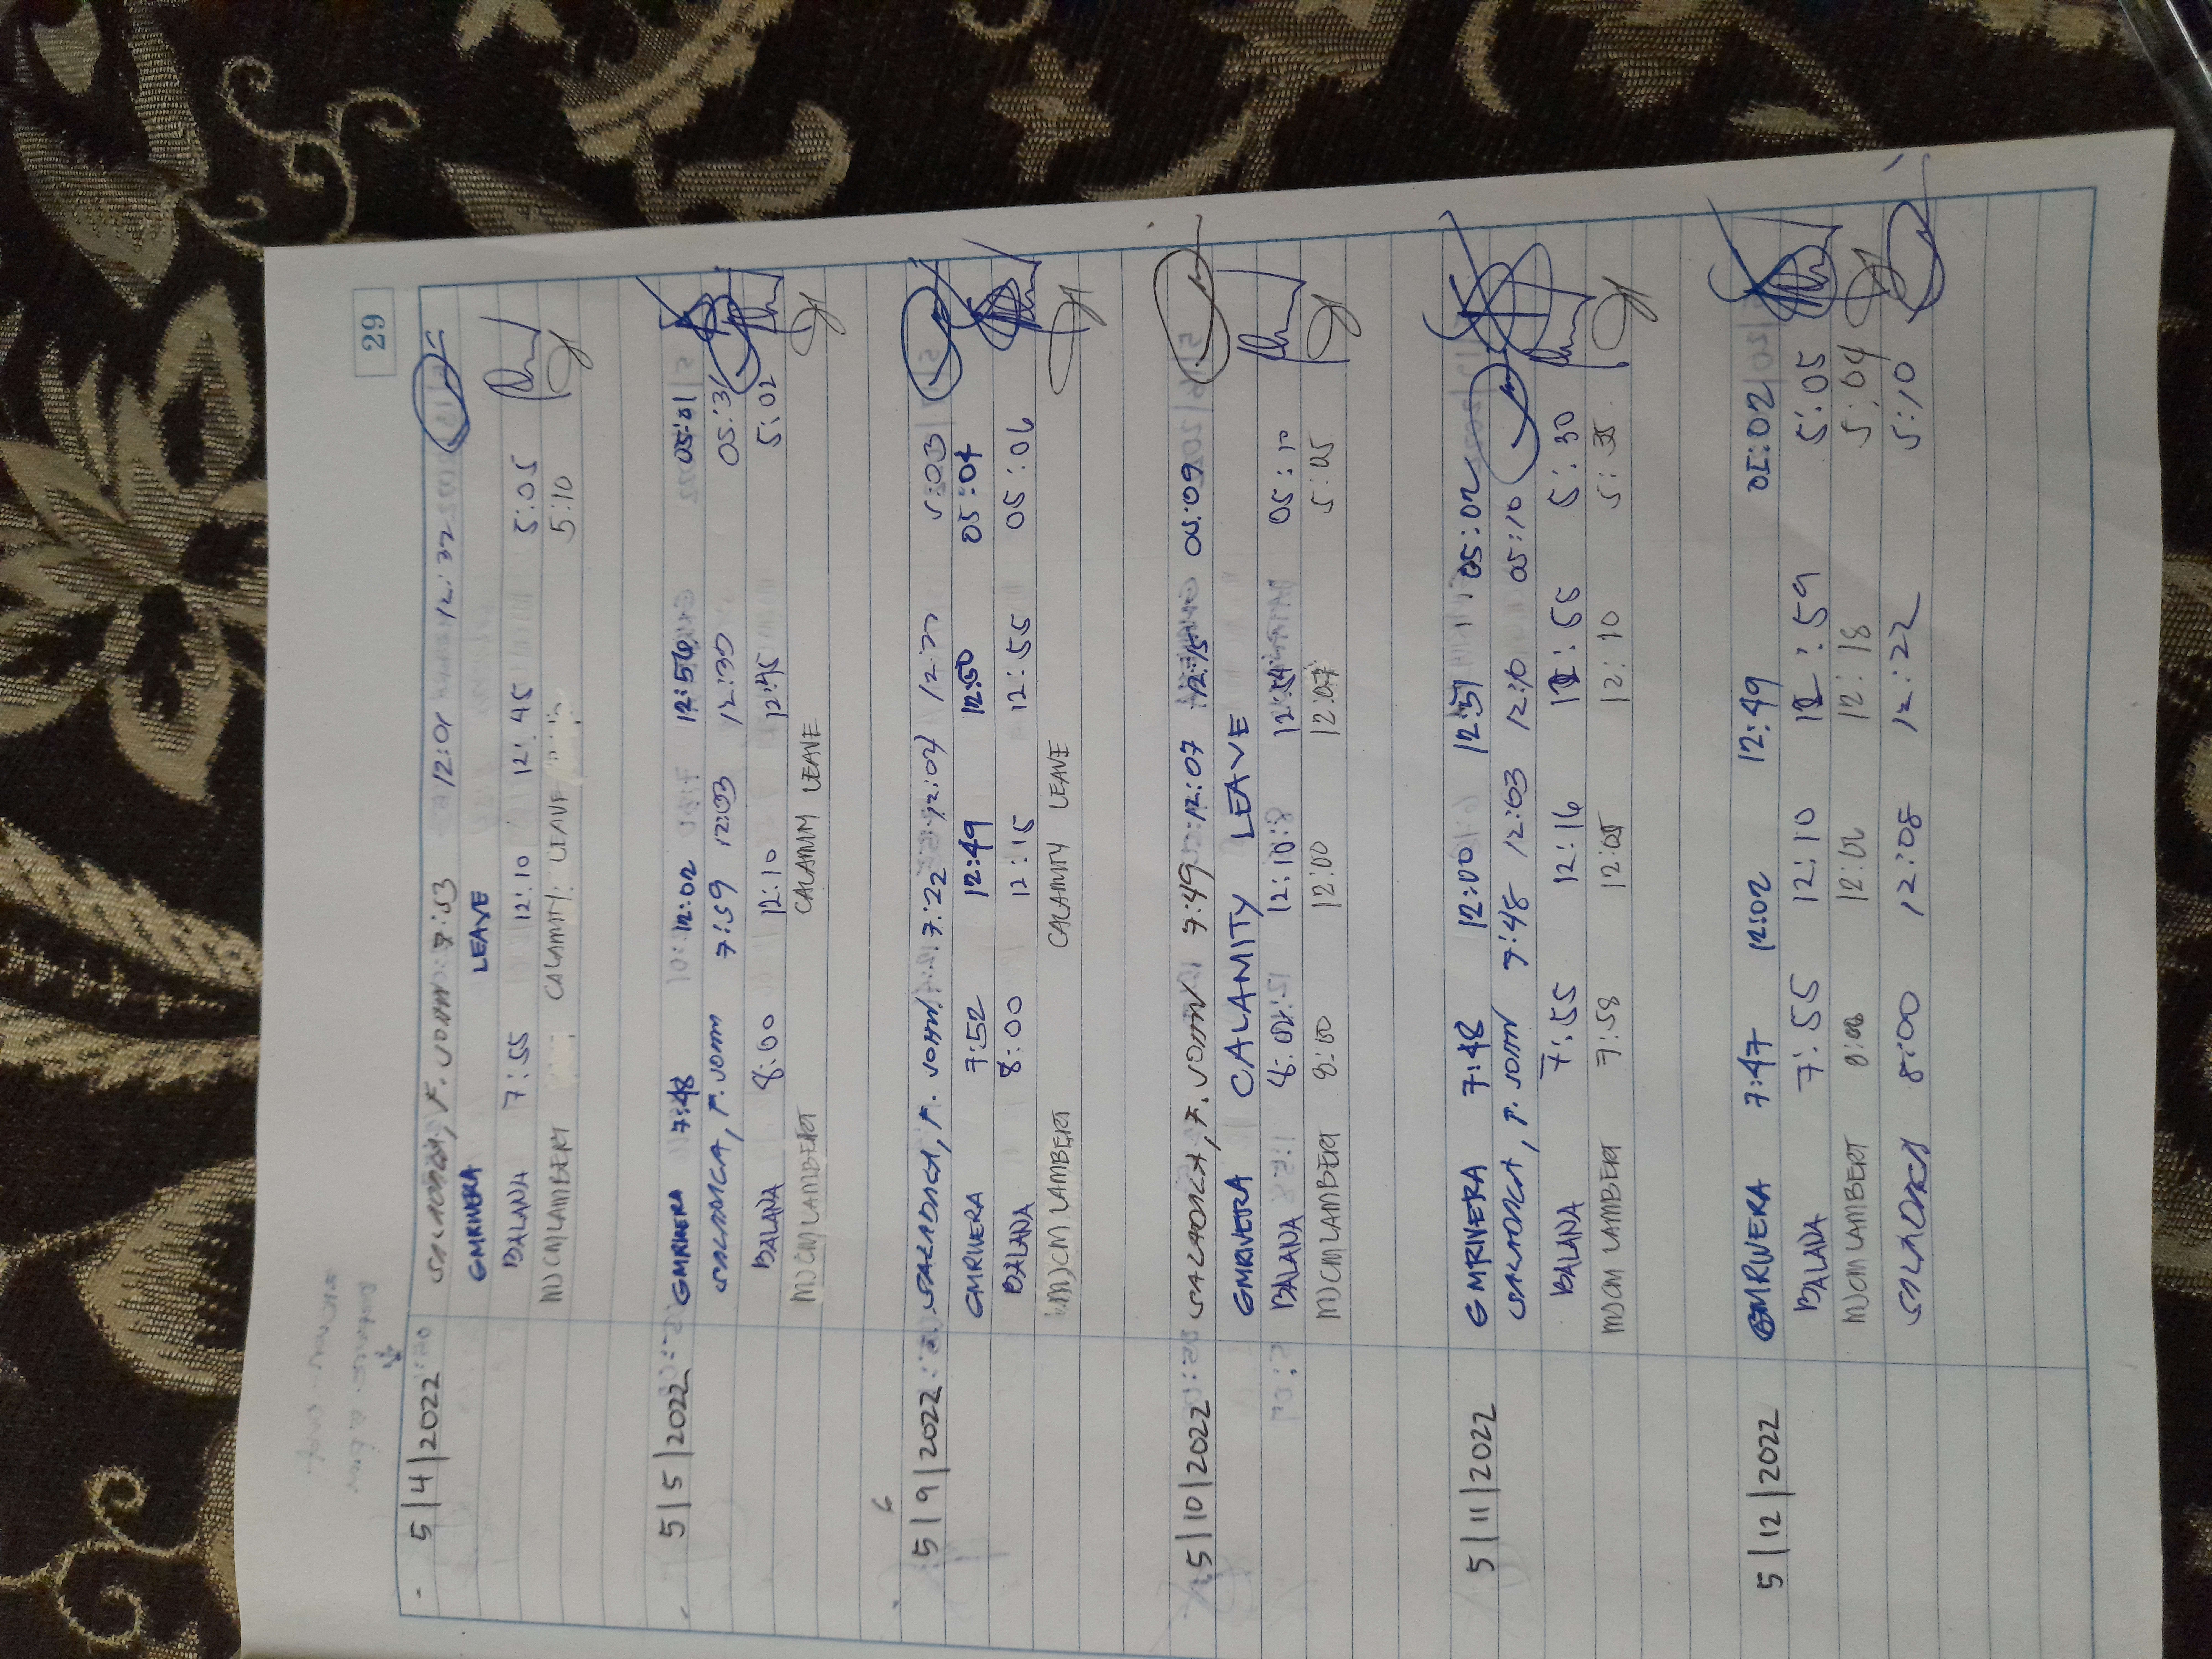 29
5|4|2022 F. JOHN 7:53 12:01 12:32
GMRIVERA LEAVE
BALANA 7:55 12:10 12:45 5:05
MJCMLAMBERT CALAMITY LEAVE 5:10
5|5|2022 GMRIVERA 7:48 12:02 12:56 05:01
SALADAGA, F. JOHN 7:59 12:03 12:30
BALANA 8:00 12:10 12:45 5:02
MJCMLAMBERT CALAMITY LEAVE
5|9|2022 SALADAGA, F. JOHN 7:22 12:04 5:03
GMRIVERA 7:52 12:49 12:50 05:04
BALANA 8:00 12:15 12:55 05:06
MJCMLAMBERT CALAMITY LEAVE
5|10|2022 SALADAGA, F. JOHN 7:49 12:07 12:15 05:09
GMRIVERA CALAMITY LEAVE
BALANA 12:10 05:10
MJCMLAMBERT 8:00 12:00 12:07 5:05
5|11|2022 GMRIVERA 7:48 12:00 12:51 05:02
SALADAGA, F. JOHN 7:48 12:03 12:10 05:10
BALANA 7:55 12:16 12:55 5:30
MJCMLAMBERT 7:58 12:05 12:10
5|12|2022 GMRIVERA 7:47 12:02 12:49 05:02
BALANA 7:55 12:10 12:59 5:05
MJCMLAMBERT 8:00 12:18 5:04
SALADAGA 8:00 12:08 12:22 5:10